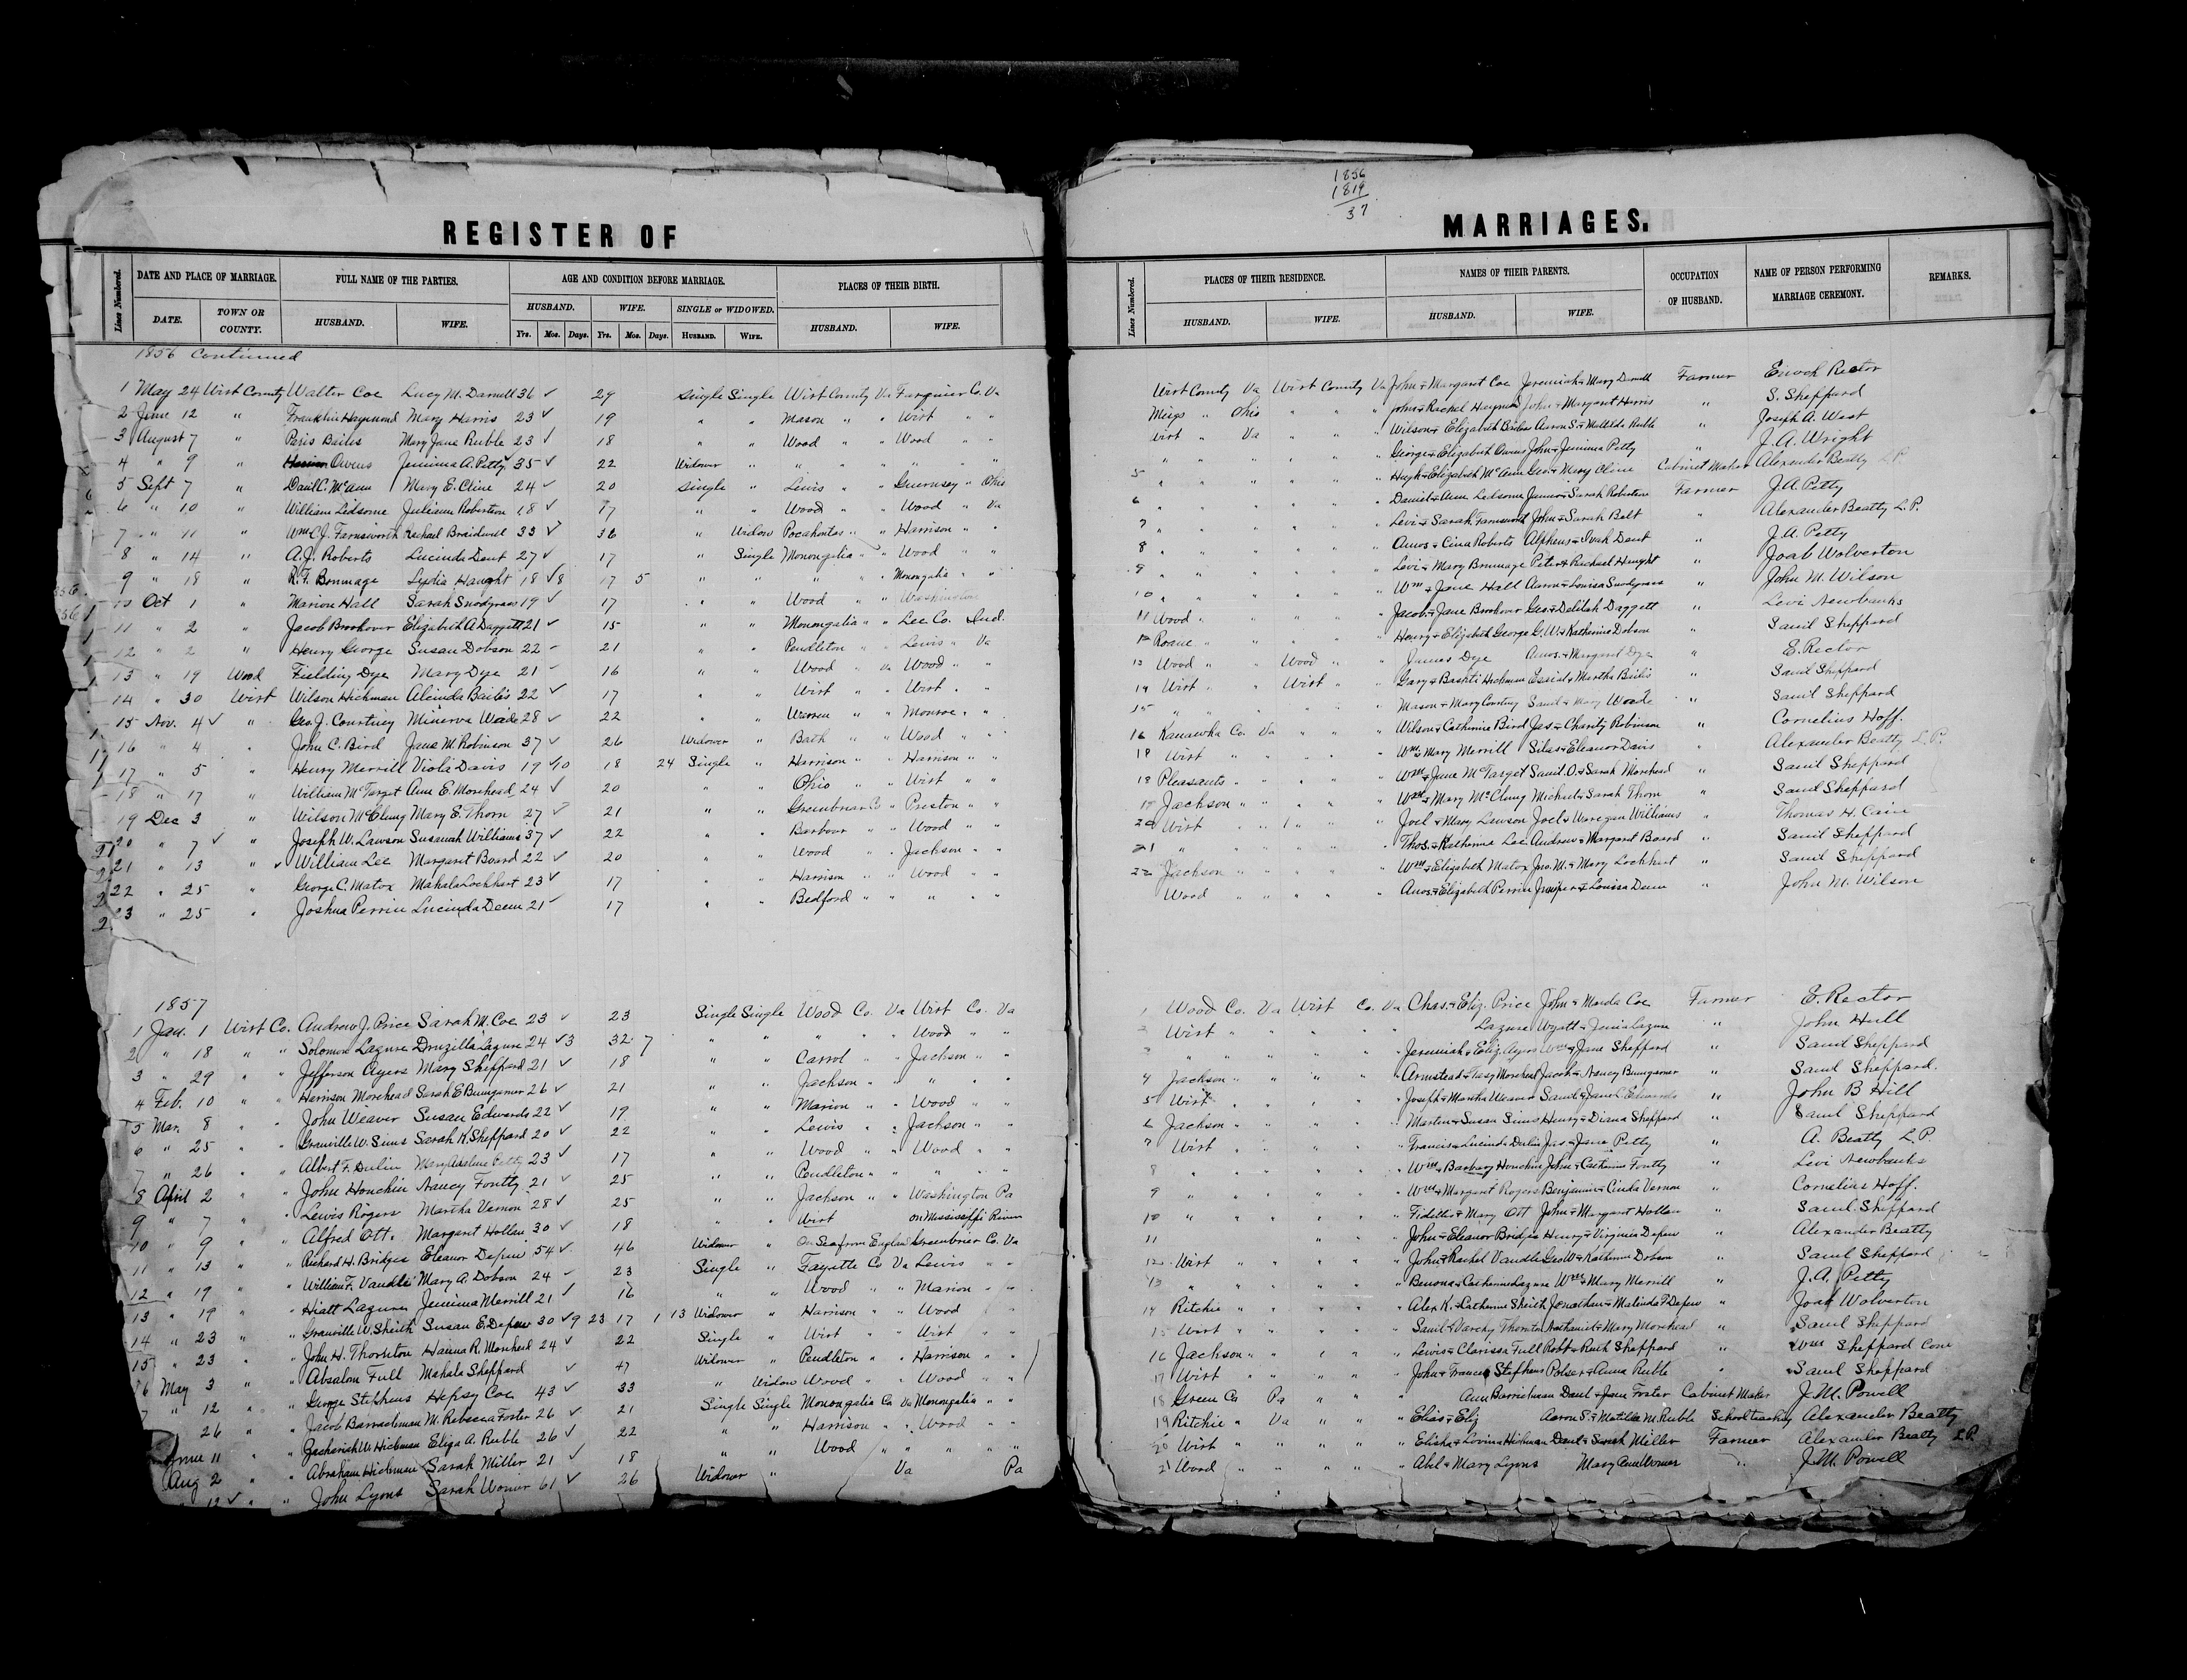 1856
1819
37
REGISTER OF MARRIAGES.
Lines Numbered. DATE AND PLACE OF MARRIAGE. FULL NAME OF THE PARTIES. AGE AND CONDITION BEFORE MARRIAGE. PLACES OF THEIR BIRTH. Lines Numbered. PLACES OF THEIR RESIDENCE. NAMES OF THEIR PARENTS. OCCUPATION OF HUSBAND. NAME OF PERSON PERFORMING MARRIAGE CEREMONY. REMARKS.
DATE. TOWN OR COUNTY. HUSBAND. WIFE. HUSBAND. WIFE. SINGLE or WIDOWED. HUSBAND. WIFE. HUSBAND. WIFE. HUSBAND. WIFE.
Yrs. Mos. Days. Yrs. Mos. Days. HUSBAND. WIFE.
1856 Continued
1 May 24 Wirt County Walter Coe Lucy M. Darnell 36 ✓ 29 Single Single Wirt County Va Farquier Co. Va Wirt County Va Wirt County Va John & Margaret Coe Jeremiah & Mary Darnell Farmer Enoch Rector
2 June 12 " Franklin Haymond Mary Harris 23 ✓ 19 " " Mason " " Wirt " " Meigs " Ohio " " " John & Rachel Haymond John & Margaret Harris " S. Sheppard
3 August 7 " Paris Bailes Mary Jane Ruble 23 ✓ 18 " " Wood " " Wood " " Wirt " Va " " " Wilson & Elizabeth Aaron S. & Matilda Ruble " Joseph A. West
4 " 9 " Owens Jemima A. Petty 35 ✓ 22 Widower " " " " " " " " " " " " " George & Elizabeth Owens John & Jemima Petty " J. A. Wright
5 Sept 7 " Danl C. McCann Mary E. Cline 24 ✓ 20 Single " Lewis " " Guernsey " Ohio 5 " " " " " " Hugh & Elizabeth McCann Geo. & Mary Cline Cabinet Maker Alexander Beatty L.P.
6 " 10 " William Ledsome Juliann Robertson 18 ✓ 17 " " Wood " " Wood " Va 6 " " " " " " Daniel & Ann Ledsome James & Sarah Robertson Farmer J. A. Petty
7 " 11 " Wm. C. J. Farnsworth Rachael Braidwell 33 ✓ 36 " Widow Pocahontas " " Harrison " " 7 " " " " " " Levi & Sarah Farnsworth John & Sarah Belt " Alexander Beatty L.P.
8 " 14 " A. J. Roberts Lucinda Dent 27 ✓ 17 " Single Monongalia " " Wood " " 8 " " " " " " Amos & Cina Roberts Alpheus & Dent " J. A. Petty
9 " 18 " R. F. Bonnage Lydia Haught 18 ✓ 8 17 5 " " " " " Monongalia " " 9 " " " " " " Levi & Mary Bonnage Peter & Rachael Haught " Joab Wolverton
10 Oct 1 " Marion Hall Sarah Snodgrass 19 ✓ 17 " " Wood " " Washington 10 " " " " " " Wm & Jane Hall Aaron & Louisa Snodgrass " John M. Wilson
11 " 2 " Jacob Brookover Elizabeth A Daggett 21 ✓ 15 " " Monongalia " " Lee Co. Ind. 11 Wood " " " " " Jacob & Jane Brookover Geo. & Delilah Daggett " Levi Newbanks
12 " 2 " Henry George Susan Dobson 22 - 21 " " Pendleton " " Lewis " Va 12 Roane " " " " " Henry & Elizabeth George G. W. & Katherine Dobson " Saml Sheppard
13 " 19 Wood Fielding Dye Mary Dye 21 - 16 " " Wood " Va Wood " " 13 Wood " " Wood " " James Dye Amos & Margaret Dye " E. Rector
14 " 30 Wirt Wilson Hickman Alcinda Bailis 22 ✓ 17 " " Wirt " " Wirt " " 14 Wirt " " Wirt " " Gary & Bashti Hickman & Martha Bailis " Saml Sheppard
15 Nov. 4 ✓ " Geo. J. Courtney Minerva Woode 28 ✓ 22 " " Warren " " Monroe " " 15 " " " " " " Mason & Mary Courtney Saml & Mary Woode " Saml Sheppard
16 " 4 " John C. Bird Jane M. Robinson 37 ✓ 26 Widower " Bath " " Wood " " 16 Kanawha Co. Va " " " Wilson & Catherine Bird Jas. & Charity Robinson " Cornelius Hoff.
17 " 5 " Henry Merrill Viola Davis 19 ✓ 10 18 24 Single " Harrison " " Harrison " " Wirt " " " " " Wm & Mary Merrill Silas & Eleanor Davis " Alexander Beatty L.P.
18 " 17 " William McTarget Ann E. Morehead 24 ✓ 20 " " Ohio " " Wirt " " 18 Pleasants " " " " " Wm & Jane McTarget Saml. O. & Sarah Morehead " Saml Sheppard
19 Dec 3 " Wilson McClung Mary E. Thorn 27 ✓ 21 " " Greenbrier Co " Preston " " 19 Jackson " " " " " Wm & Mary McClung Michael & Sarah Thorn " Saml Sheppard
20 " 7 ✓ " Joseph W. Lawson Susannah Williams 37 ✓ 22 " " Barbour " " Wood " " 20 Wirt " " " " " Joel & Mary Lawson Joel & Williams " Thomas H. Cain
21 " 13 " ✓ William Lee Margaret Board 22 ✓ 20 " " Wood " " Jackson " " 21 " " " " " " Thos. & Katherine Lee Andrew & Margaret Board " Saml Sheppard
22 " 25 " George C. Matox Mahala Lockhart 23 ✓ 17 " " Harrison " " Wood " " 22 Jackson " " " " " Wm & Elizabeth Matox Jno. M. & Mary Lockhart " Saml Sheppard
23 " 25 " Joshua Perrin Lucinda Deem 21 ✓ 17 " " Bedford " " " " " Wood " " " " " Amos & Elizabeth Perrin & Louisa Deem " John M. Wilson
1857
1 Jan. 1 Wirt Co. Andrew J. Price Sarah M. Coe 23 ✓ 23 Single Single Wood Co. Va Wirt Co. Va 1 Wood Co. Va Wirt Co. Va Chas. & Eliz. Price John & Coe Farmer E. Rector
2 " 18 " " Solomon Lagure Druzilla Lagure 24 ✓ 3 32 7 " " " " " Wood " " 2 Wirt " " " " " Lagure Wyatt & Lagure " John Hull
3 " 29 " " Jefferson Ayers Mary Sheppard 21 ✓ 18 " " Carrol " " Jackson " " 3 " " " " " " Jeremiah & Eliz Ayers Wm & Jane Sheppard " Saml Sheppard
4 Feb. 10 " " Harrison Morehead Sarah E Bumgarner 26 ✓ 21 " " Jackson " " " " " 4 Jackson " " " " " Armstead & Morehead Jacob & Nancy Bumgarner " Saml Sheppard.
5 Mar. 8 " " John Weaver Susan Edwards 22 ✓ 19 " " Marion " " Wood " " 5 Wirt " " " " " Joseph & Martha Weaver Saml & Edwards " John B Hill
6 " 25 " " Granville W. Sims Sarah K. Sheppard 20 ✓ 22 " " Lewis " " Jackson " " 6 Jackson " " " " " Martin & Susan Sims Henry & Diana Sheppard " Saml Sheppard
7 " 26 " " Albert F. Dulin Mary Adaline Petty 23 ✓ 17 " " Wood " " Wood " " 7 Wirt " " " " " Francis & Lucinda Dulin Jas. & Jane Petty " A. Beatty L.P.
8 April 2 " " John Honchin Nancy Fontty 21 ✓ 25 " " Pendleton " " " " " 8 " " " " " " Wm & Barbary Honchin John & Catharine Fontty " Levi Newbanks
9 " 7 " " Lewis Rogers Martha Vernon 28 ✓ 25 " " Jackson " " Washington Pa 9 " " " " " " Wm & Margaret Rogers Benjamin & Cinda Vernon " Cornelius Hoff.
10 " 9 " " Alfred Ott. Margaret Hollan 30 ✓ 18 " " Wirt on Mississippi River 10 " " " " " " Fidellis & Mary Ott John & Margaret Hollan " Saml. Sheppard
11 " 13 " " Richard H. Bridges Eleanor Depew 54 ✓ 46 Widower " On Sea from England Greenbrier Co. Va 11 " " " John & Eleanor Bridges Henry & Virginia Depew " Alexander Beatty
12 " 19 " " William F. Vandle Mary A. Dobson 24 - 23 Single " Fayette Co Va Lewis " " 12 Wirt " " " " " John & Rachel Vandle Geo W & Katherine Dobson " Saml Sheppard
13 " 19 " " Hiatt Lagure Jemima Merrill 21 ✓ 16 " " Wood " " Marion " " 13 " " " " " " Benona & Catherine Lagure Wm & Mary Merrill " J. A. Petty
14 " 23 " " Granville W. Sheith Susan E. Depew 30 ✓ 9 23 17 1 13 Widower " Harrison " " Wood " " 14 Ritchie " " " " " Alex K. & Catherine Sheith Jonathan & Malinda F Depew " Joab Wolverton
15 " 23 " " John H. Thornton Hanna R. Morehead 24 ✓ 22 Single " Wirt " " Wirt " " 15 Wirt " " " " " Saml & Thornton Nathaniel & Mary Morehead " Saml Sheppard
16 May 3 " " Absalom Full Mahala Sheppard ✓ 47 Widower " Pendleton " " Harrison " " 16 Jackson " " " " " Lewis & Clarissa Full Robt & Ruth Sheppard " Wm Sheppard
" 12 " " George Stephens Hepsy Coe 43 ✓ 33 " Widow Wood " " Wood " " 17 Wirt " " " " " John & Frances Stephens & Anna Ruble " Saml Sheppard
26 " " Jacob Barrackman M. Rebecca Foster 26 ✓ 21 Single Single Monongalia Co Va Monongalia " " 18 Green Co Pa " " " Ann Barrickman Danl & Jane Foster Cabinet Maker J. M. Powell
June 11 " " Zachariah W. Hickman Eliza A. Ruble 26 ✓ 22 " " Harrison " " Wood " " 19 Ritchie " Va " " " Elias & Eliz Aaron S. & Matilda M. Ruble School teaching Alexander Beatty
Aug 2 " " Abraham Hickman Sarah Miller 21 ✓ 18 " " Wood " " " " " 20 Wirt " " " " " Elisha & Lovina Hickman Danl & Sarah Miller Farmer Alexander Beatty L.P.
12 ✓ " " John Lyons Sarah Womer 61 ✓ 26 Widower " Va Pa 21 Wood " " " " " Abel & Mary Lyons Mary Ann Womer " J. M. Powell